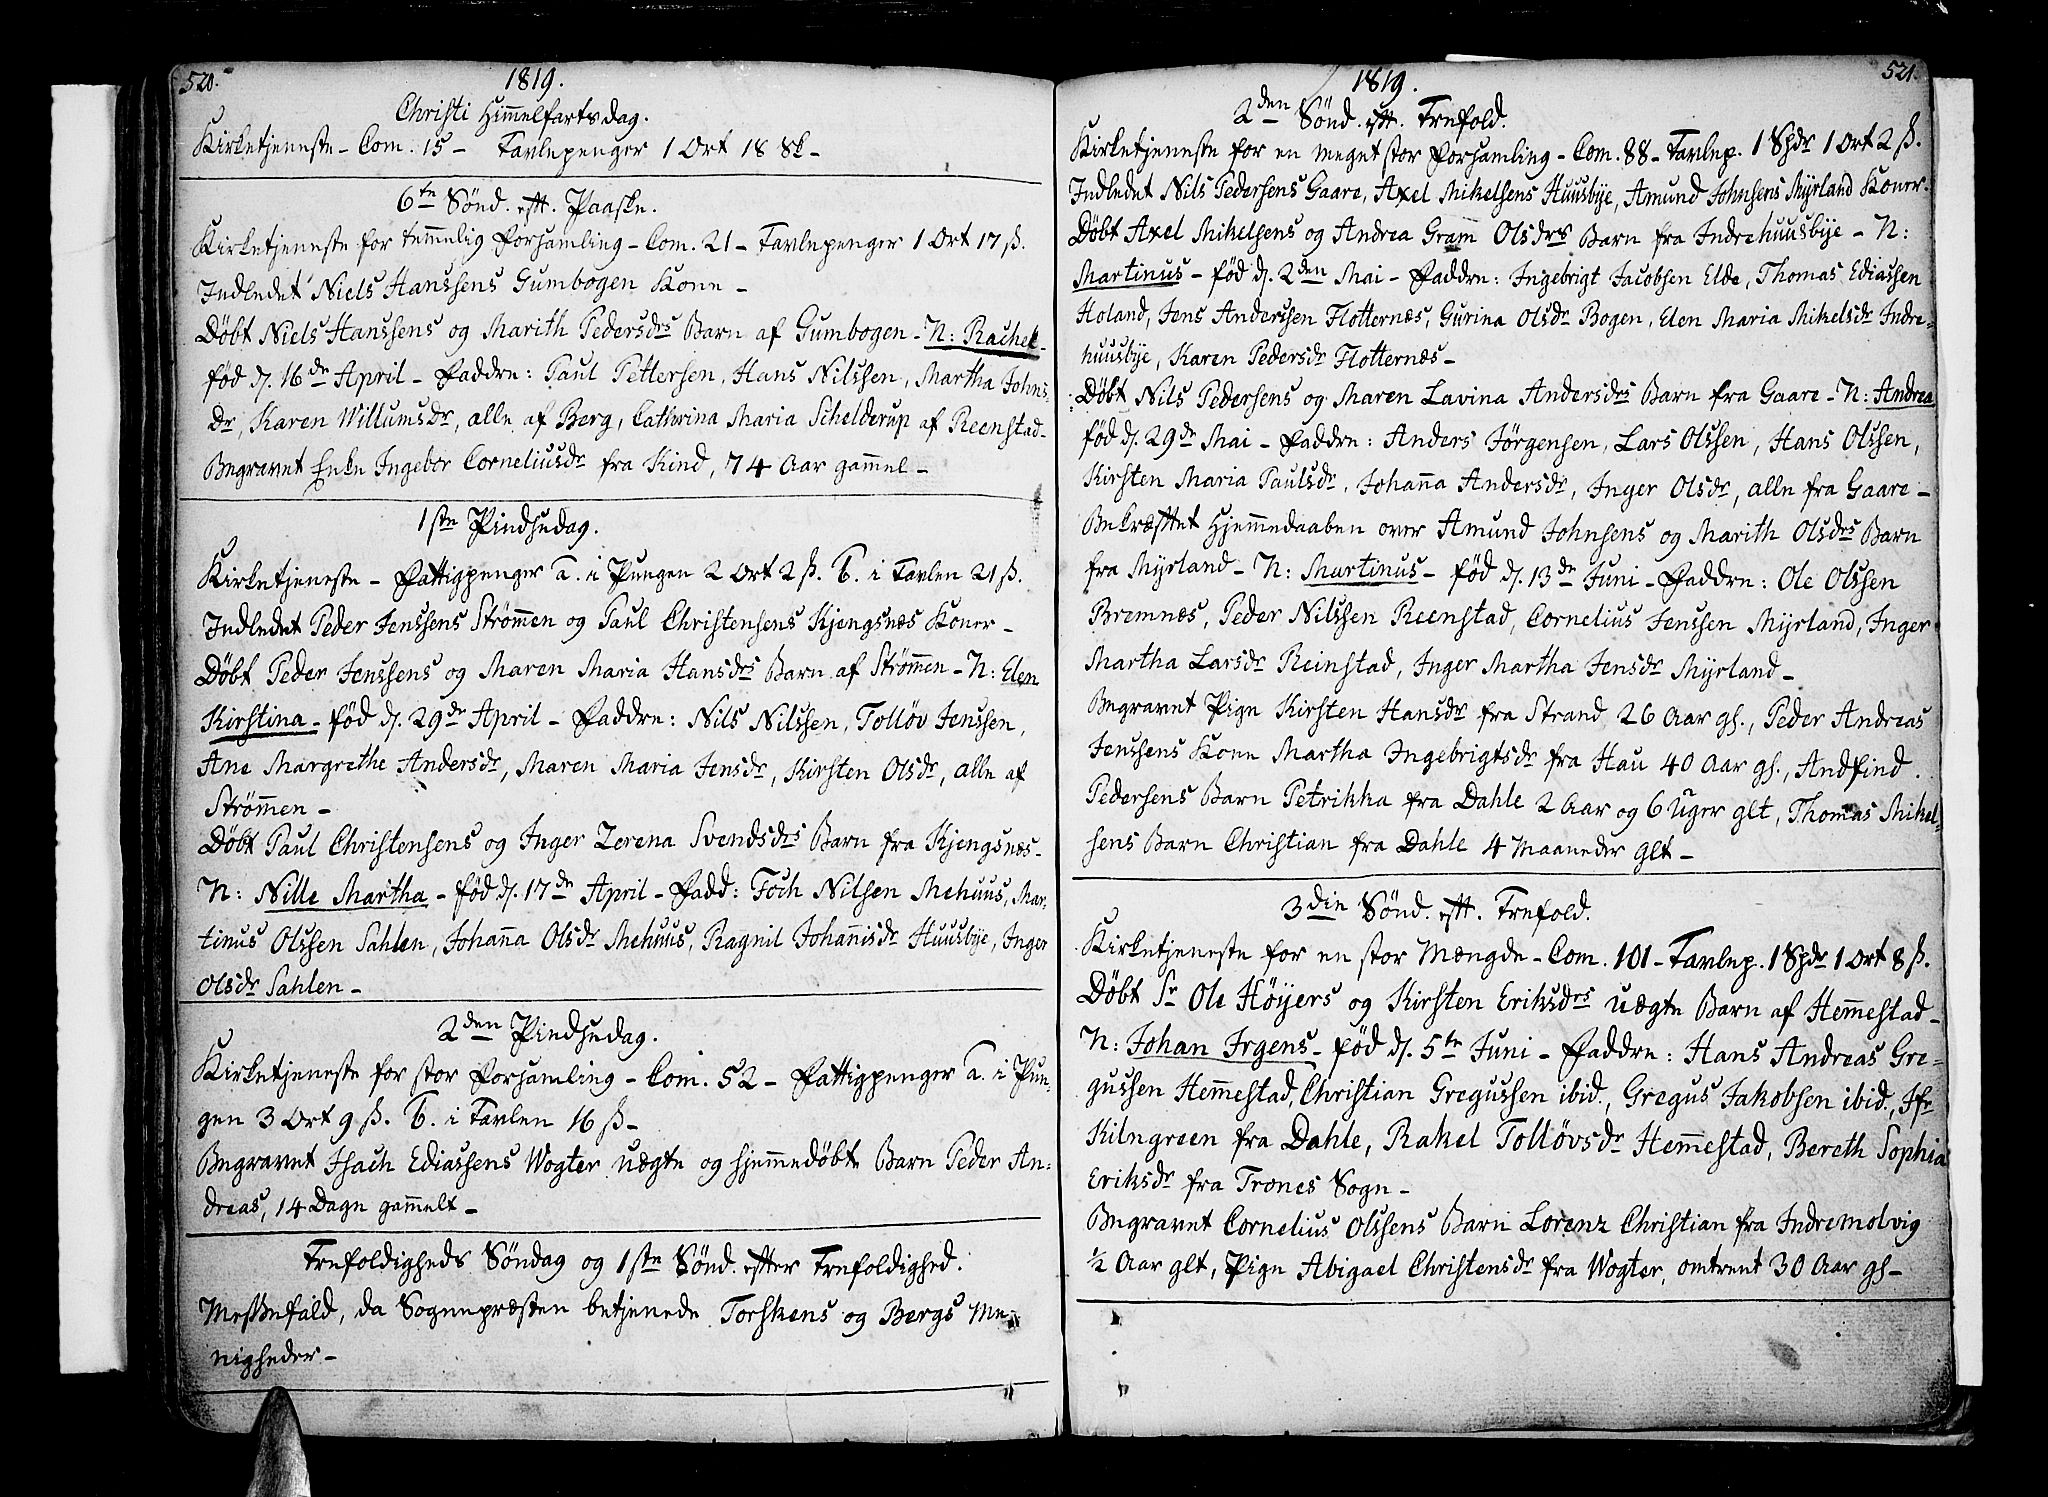 520.
1819.
Christi Himmelfartsdag.
Kirketjeneste – Com. 15 – Tavlepenger 1 Ort 18 Sk –
6te Sönd. eft. Paaske.
Kirketjeneste for temmelig Forsamling – Com. 21 – Tavlepenger 1 Ort 17 ß.
Indledet Niels Hanssens Gumbogen Kone –
Døbt Niels Hanssens og Marith Pedersdrs Barn af Gumbogen – N: Rachel –
föd d. 16de April – Faddre: Paul Pettersen, Hans Nilssen, Martha Johns-
dr, Karen Willumsdr, alle af Berg, Cathrina Maria Schelderup af Reenstad –
Begravet Enke Ingebor Corneliusdr fra Kind, 74 Aar gammel –
1ste Pindsedag.
Kirketjeneste – Fattigpenger a. i Pungen 2 Ort 2 ß. b. i Tavlen 21 ß.
Indledet Peder Jenssens Strömen og Paul Christensens Kjengsnæs Koner –
Døbt Peder Jenssens og Maren Maria Hansdrs Barn af Strömen – N: Elen
Kirstina – föd d. 29de April – Faddre: Nils Nilssen, Tollöv Jenssen,
Ane Margrethe Andersdr, Maren Maria Jensdr, Kirsten Olsdr, alle af
Strömen –
Døbt Paul Christensens og Inger Zerena Svendsdrs Barn fra Kjengsnæs –
N: Nille Martha – föd d. 17de April – Fadd: Foch Nilsen Mehuus, Mar-
tinus Olssen Sahlen, Johana Olsdr Mehuus, Ragnil Johanisdr Huusbye, Inger
Olsdr Sahlen –
2den Pindsedag.
Kirketjeneste for stor Forsamling – Com. 52 – Fattigpenger a. i Pun-
gen 3 Ort 9 ß. b. i Tavlen 16 ß –
Begravet Isach Ediassens Wogter uægte og hjemedøbte Barn Peder An-
dreas, 14 Dage gamelt –
Trefoldigheds Söndag og 1ste Sönd. efter Trefoldighed.
Messefald, da Sognepræsten betjenede Torskens og Bergs Me-
nigheder –
521.
1819.
2den Sönd. eft. Trefold.
Kirketjeneste for en meget stor Forsamling – Com. 88 – Tavlep. 1 Spdr 1 Ort 2 ß.
Indledet Nils Pedersens Gaare, Axel Mikelsens Huusbye, Amund Johnsens Myrland Koner.
Døbt Axel Mikelsens og Andrea Gram Olsdrs Barn fra Indrehuusbye – N:
Martinus – föd d. 2den Mai – Faddre: Ingebrigt Jacobsen Elde, Thomas Ediassen
Holand, Jens Anderssen Flotternæs, Gurina Olsdr Bogen, Elen Maria Mikelsdr Indre-
huusbye, Karen Pedersdr Flotternæs –
Døbt Nils Pedersens og Maren Lavina Andersdrs Barn fra Gaare – N: Andrea
föd d. 29de Mai – Faddre: Anders Jörgensen, Lars Olssen, Hans Olssen,
Kirsten Maria Paulsdr, Johana Andersdr, Inger Olsdr, alle fra Gaare –
Bekræftet Hjemmedaaben over Amund Johnsens og Marith Olsdrs Barn
fra Myrland – N: Martinus – föd d. 13de Juni – Faddre: Ole Olssen
Bremnæs, Peder Nilssen Reenstad, Cornelius Jenssen Myrland, Inger
Martha Larsdr Reinstad, Inger Martha Jensdr Myrland –
Begravet Pige Kirsten Hansdr fra Strand 26 Aar gl., Peder Andreas
Jenssens Kone Martha Ingebrigtsdr fra Hau 40 Aar gl., Andfind
Pedersens Barn Petrikka fra Dahle 2 Aar og 6 Uger glt, Thomas Mikel-
sens Barn Christian fra Dahle 4 Maaneder glt –
3die Sönd. eft. Trefold.
Kirketjeneste for en stor Mængde – Com. 101 – Tavlep. 1 Spdr 1 Ort 8 ß.
Døbt Sr Ole Höyers og Kirsten Eriksdrs uægte Barn af Hemestad –
N: Johan Irgens – föd d. 5te Juni – Faddre: Hans Andreas Gre-
gussen Hemestad, Christian Gregussen ibid., Gregus Jakobsen ibid., Jfr
Kilngreen fra Dahle, Rakel Tollövsdr Hemestad, Bereth Sophia
Eriksdr fra Trones Sogn –
Begravet Cornelius Olssens Barn Lorenz Christian fra Indremolvig
½ Aar glt, Pige Abigael Christensdr fra Wogter, omtrent 30 Aar gl –